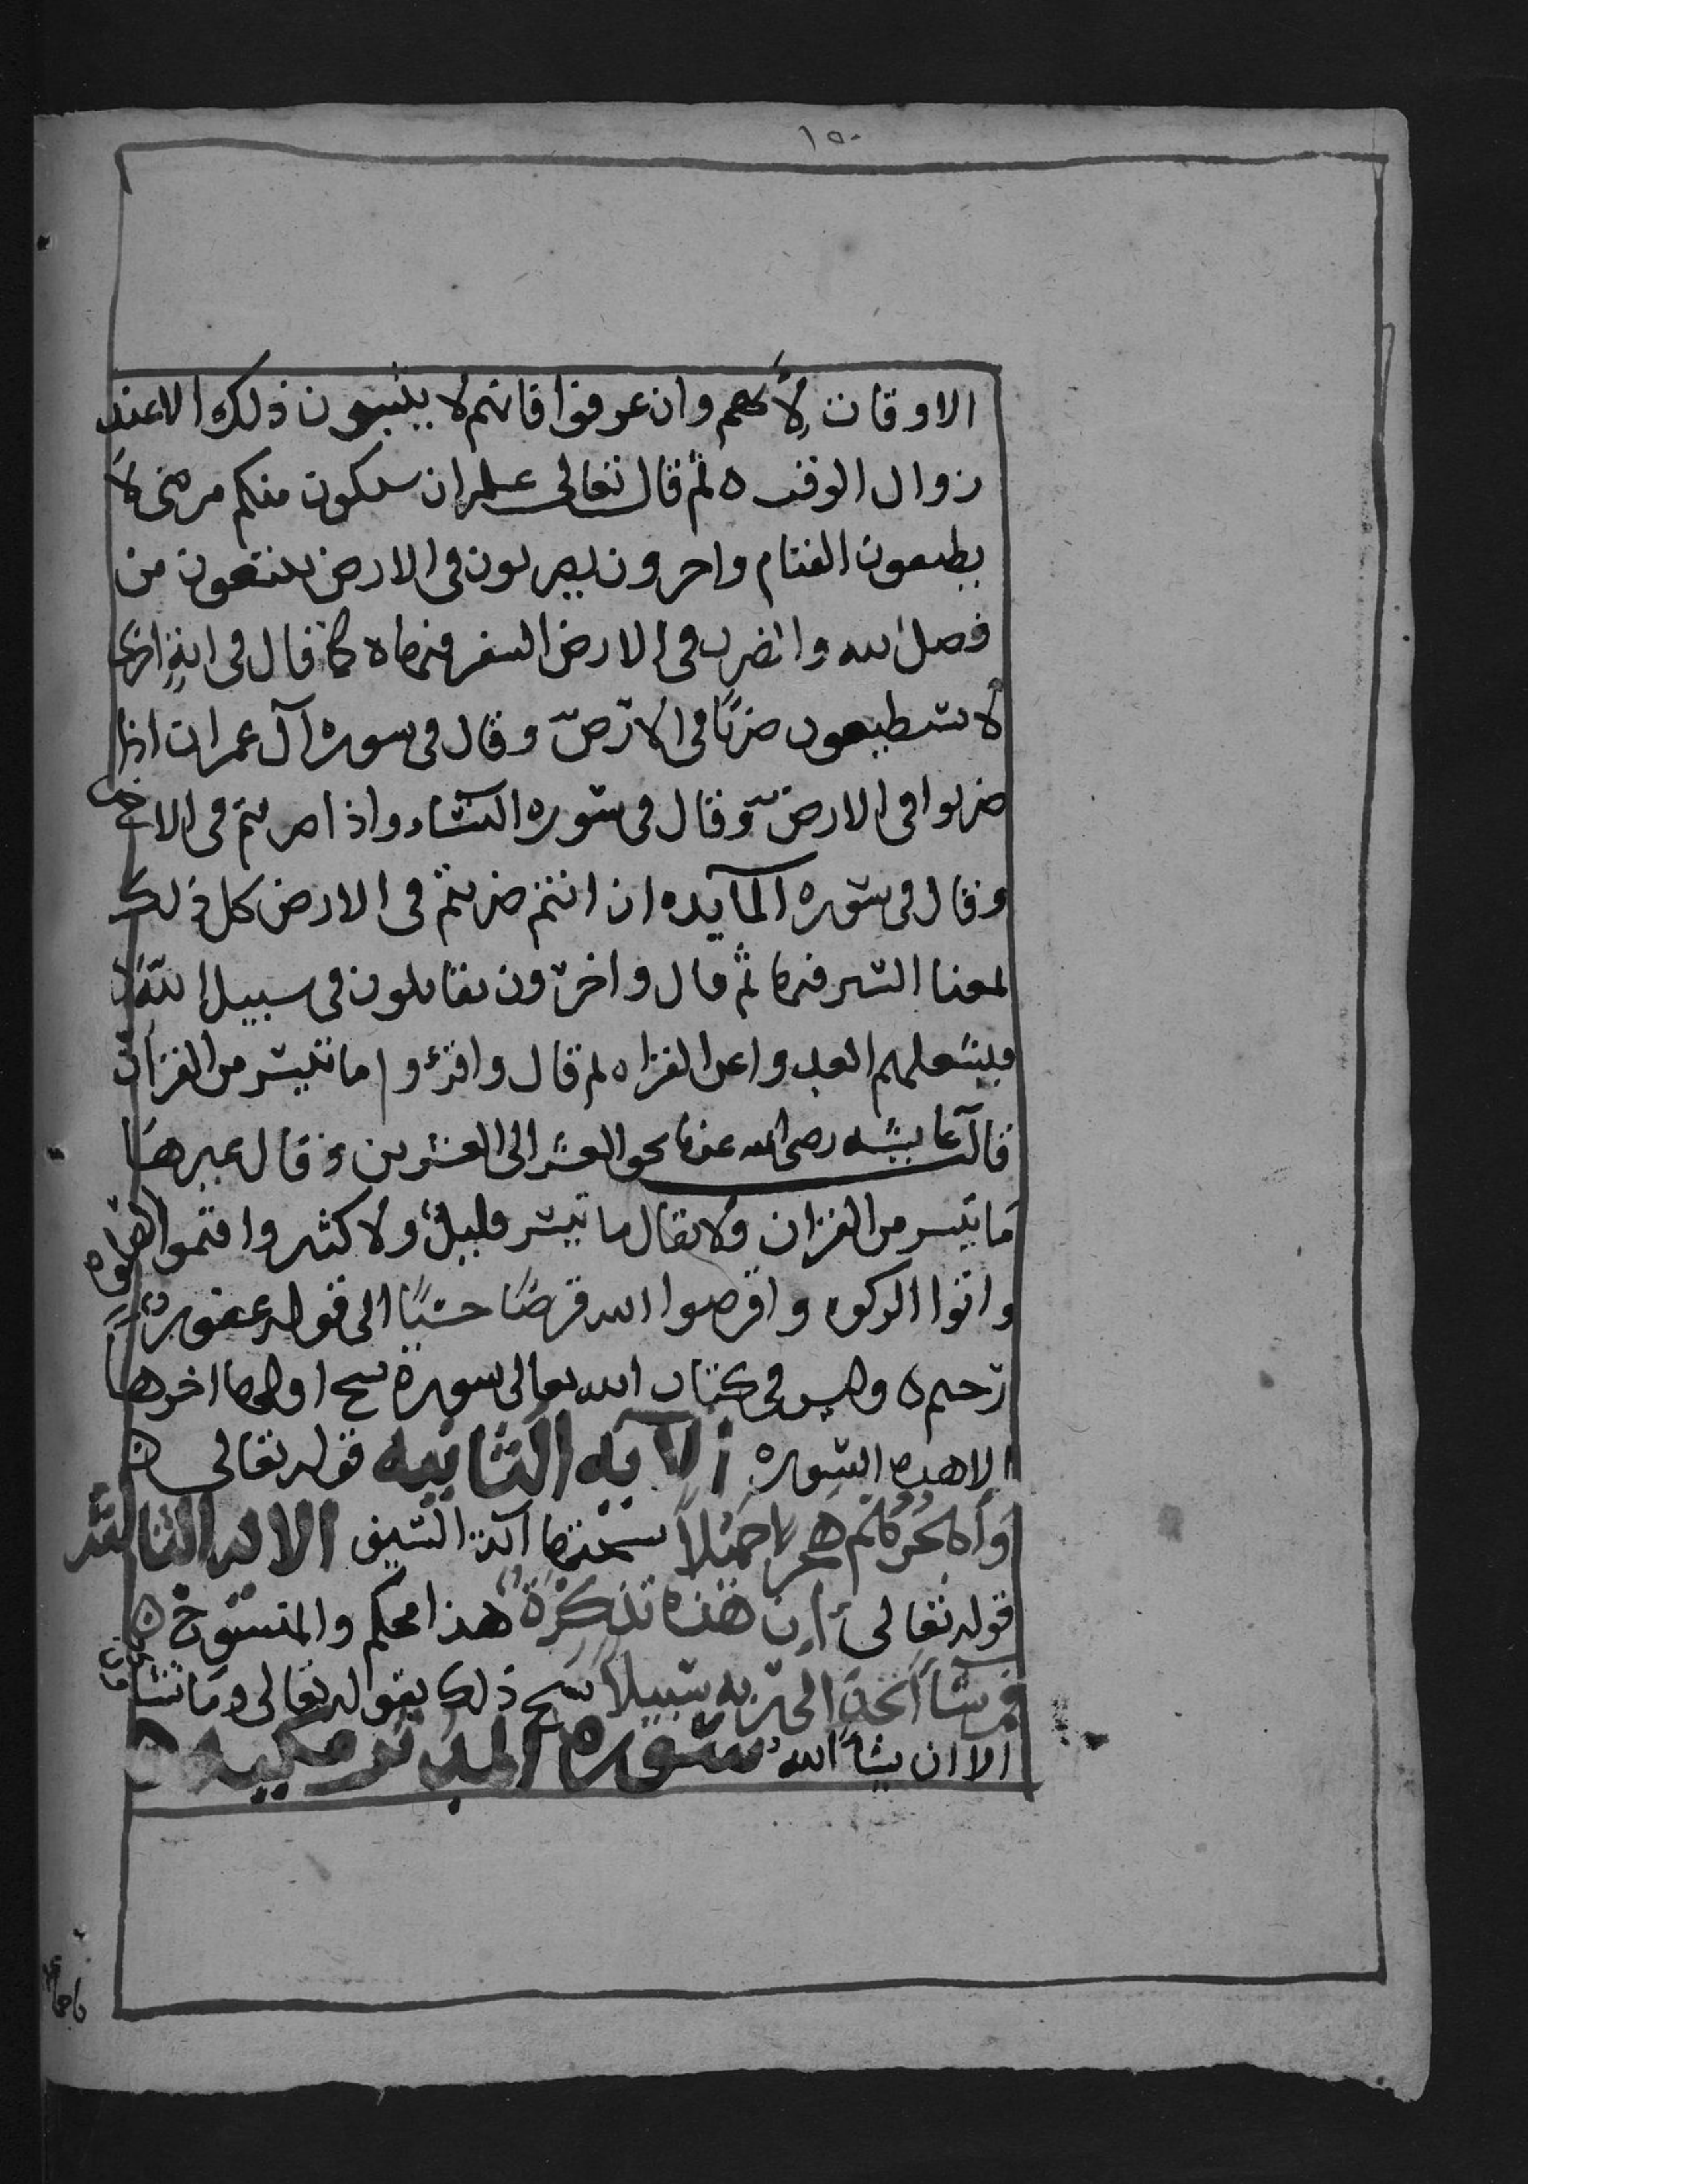 ١٥٠
الاوقات لانهم وان عرفوا فانهم لا يتبينون ذلك الا عند
زوال الوقت ه ثم قال تعالى علم ان سيكون منكم مرضى لا
يطيعون القتام واخرون يضربون في الارض يبتغون من
فضل الله والضرب في الارض السفر فيها ه كما قال في اية اخرى
لا يستطيعون ضربًا في الارض وقال في سوره آل عمران اذا
ضربوا في الارض وقال في سوره النساء واذا ضربتم في الارض
وقال في سوره المآيده ان انتم ضربتم في الارض كل ذلك
لمعنا السير فيها ثم قال واخرون يقاتلون في سبيل الله
العدو القراه ثم قال واقرؤوا ما تيسر من القرآن
قالت عايشه رضي الله عنها نحو العشر الى العشرين وقال غيرها
ما تيسر من القران ولا يقال ما تيسر قليلٌ ولا كثير واقيموا الصلوه
واتوا الزكوه واقرضوا الله قرضًا حسنًا الى قوله غفورٌ
رحيم ه وليس في كتاب الله تعالى سورة نسخ اولها اخرها
الا هذه السوره الآيه الثانيه قوله تعالى ه
وَاهْجُرْهُمْ هَجْرًا جَمِيْلاً نسختها آية السيف الايه الثالثه
قوله تعالى اِن هذه تذكِرَةٌ هذا محكم والمنسوخ ه
فمن شآ اتخذ الى ربه سبيلاً نسخ ذلك بقوله تعالى وما تشاؤن
الا ان يشآ الله سوره المدثر مكيه ه